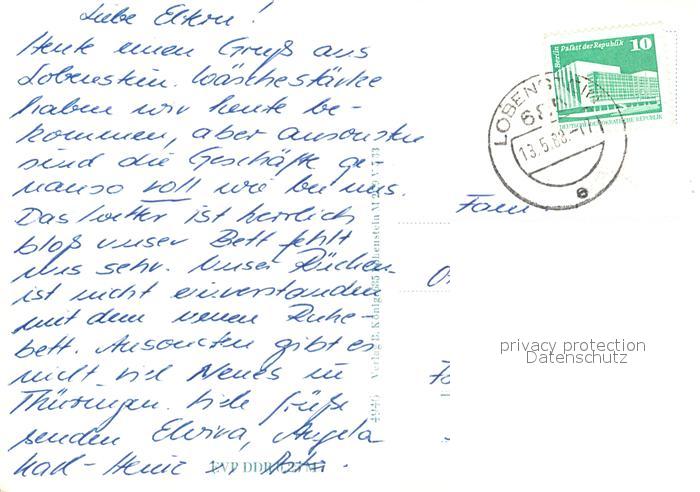 Liebe Eltern!
Heute einen Gruß aus
Lobenstein. Wäschestärke
haben wir heute be-
kommen, aber ansonsten
sind die Geschäfte ge-
nauso voll wie bei uns.
Das Wetter ist herrlich
bloß unser Bett fehlt
uns sehr. Unser Rücken
ist nicht einverstanden
mit dem neuen Ruhe-
bett. Ansonsten gibt es
nicht viel Neues in
Thüringen. Viele Grüße
senden Elvira, Angela
Karl-Heinz
EVP DDR
Verlag B. König, Lobenstein M
Berlin Palast der Republik 10
DEUTSCHE DEMOKRATISCHE REPUBLIK
LOBENSTEIN
13.5.83
e
Fam.
privacy protection
Datenschutz